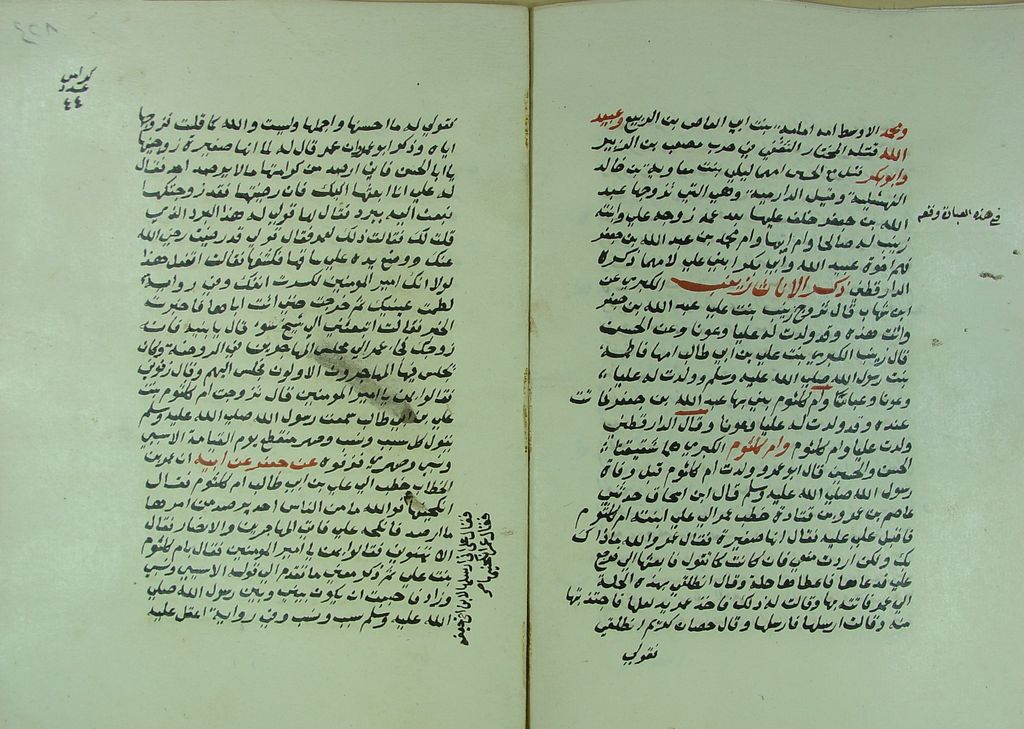 ومحمد الاوسط امه امامة بنت ابي العاص بن الربيع وعبيد
الله قتله المختار الثقفي في حرب مصعب بن الزبير
وابو بكر قتل مع الحسين امهما ليلى بنت مسعود بن خالد
النهشلية وهي التي تزوجها عبد
الله بن جعفر خلف عليها بعد عمه زوجه علي وابنته
زينب له صالحا وام ابيها وام محمد بن عبد الله بن جعفر
فهم اخوة عبيد الله وابي بكر ابني علي لامهما ذكره
الدارقطني ذكر الاناث زينب الكبرى عن
ابن شهاب قال تزوج زينب بنت علي عبد الله بن جعفر
وماتت عنده وقد ولدت له عليا وعونا وعن الحسن
قال زينب الكبرى بنت علي بن ابي طالب امها فاطمة
بنت رسول الله صلى الله عليه وسلم وولدت له عليا
وعونا وعباسا وام كلثوم بني بها عبد الله بن جعفر فماتت
عنده وقد ولدت له عليا وعونا وقال الدارقطني
ولدت عليا وام كلثوم وام كلثوم الكبرى هما شقيقتا
الحسن والحسين قال ابو عمر وولدت ام كلثوم قبل وفاة
رسول الله صلى الله عليه وسلم قال ابن اسحاق حدثني
عاصم بن عمر بن قتادة خطب عمر الى علي ابنته ام كلثوم
فاقبل علي عليه فقال انها صغيرة فقال عمر والله ما ذاك
بك ولكن اردت منعي فان كانت كما تقول فابعثها الي فرجع
علي فدعاها فاعطاها حلة وقال انطلقي بهذه الحلة
الى عمر فاتته بها وقالت له ذلك فاخذ عمر بذراعها فاجتذبتها
منه وقالت ارسلها فارسلها وقال حصان كريم انطلقي
فقولي
في هذه العبارة وقفة
كراس
عدد
٤٤
فقولي له ما احسنها واجملها وليست والله كما قلت فزوجها
اياه وذكر ابو عمر ان عمر قال له لما انها صغيرة زوجنيها
يا ابا الحسن فاني ارصد من كرامتها ما لا يرصده احد فقال
له علي انا ابعثها اليك فان رضيتها فقد زوجتكها
فبعث اليه ببرد فقال لها قولي له هذا البرد الذي
قلت لك فقالت ذلك لعمر فقال قولي له قد رضيت رضي الله
عنك ووضع يده على ساقها فكشفها فقالت اتفعل هذا
لولا انك امير المؤمنين لكسرت انفك وفي رواية
لطمت عينيك ثم خرجت حتى اتت اباها فاخبرته
الخبر فقالت ابعثتني الى شيخ سوء قال يا بنية فانه
زوجك فجاء عمر الى مجلس المهاجرين في الروضة وكان
يجلس فيها المهاجرون الاولون فجلس اليهم وقال رفوني
فقالوا بمن يا امير المؤمنين قال تزوجت ام كلثوم بنت
علي بن ابي طالب سمعت رسول الله صلى الله عليه وسلم
يقول كل سبب ونسب وصهر منقطع يوم القيامة الا سببي
ونسبي وصهري فرفوه عن جعفر عن ابيه ان عمر بن
الخطاب خطب الى علي بن ابي طالب ام كلثوم فقال
انكحنيها فوالله ما من الناس احد يرصد من امرها
ما ارصد فانكحه علي فاتى المهاجرين والانصار فقال
الا تهنوني فقالوا بمن يا امير المؤمنين فقال بام كلثوم
بنت علي ثم ذكر معنى ما تقدم الى قوله الا سببي ونسبي
وزاد فاحببت ان يكون بيني وبين رسول الله صلى
الله عليه وسلم سبب ونسب وفي رواية
فقال علي اني ارصدها لابن اخي جعفر
فقال عمر انكحنيها